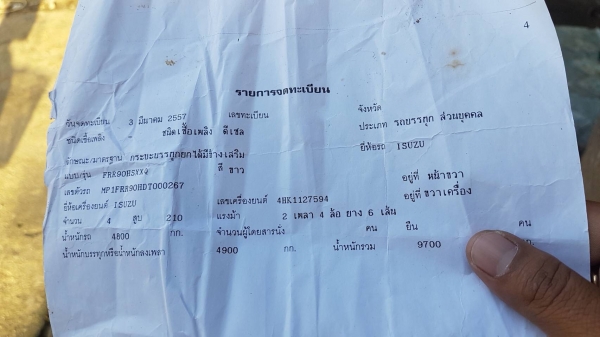 4
รายการจดทะเบียน
วันจดทะเบียน 3 มีนาคม 2557 เลขทะเบียน จังหวัด
ชนิดเชื้อเพลิง - ชนิดเชื้อเพลิง ดีเซล ประเภท รถบรรทุก ส่วนบุคคล
ลักษณะ/มาตรฐาน กระบะบรรทุกยกได้มีข้างเสริม ยี่ห้อรถ ISUZU
แบบ/รุ่น FRR90HSXXQ สี ขาว
เลขตัวรถ MP1FRR90HDT000267 อยู่ที่ หน้าขวา
ยี่ห้อเครื่องยนต์ ISUZU เลขเครื่องยนต์ 4HK1127594 อยู่ที่ ขวาเครื่อง
จำนวน 4 สูบ 210 แรงม้า 2 เพลา 4 ล้อ ยาง 6 เส้น
น้ำหนักรถ 4800 กก. จำนวนผู้โดยสารนั่ง คน ยืน คน
น้ำหนักบรรทุกหรือน้ำหนักลงเพลา 4900 กก. น้ำหนักรวม 9700 ก.